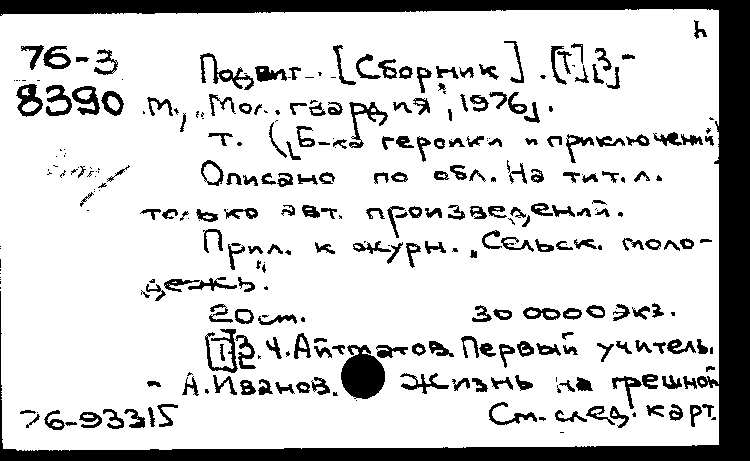 h
76-3
8390
Подвиг. [Сборник]. [Т] 3,-
М., "Мол. гвардия", 1976.
т. (Б-ка героики и приключений)
Описано по обл. На тит. л.
только авт. произведений.
Прил. к журн. "Сельск. моло-
дежь".
20см. 30 0000 экз.
[Т]3. Ч. Айтматов. Первый учитель.
- А. Иванов. Жизнь на грешной
76-93315 См. след. карт.